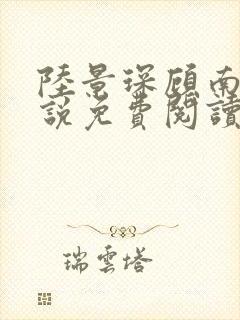 陸景琛顧南
說免費閱讀
瑞雲塔